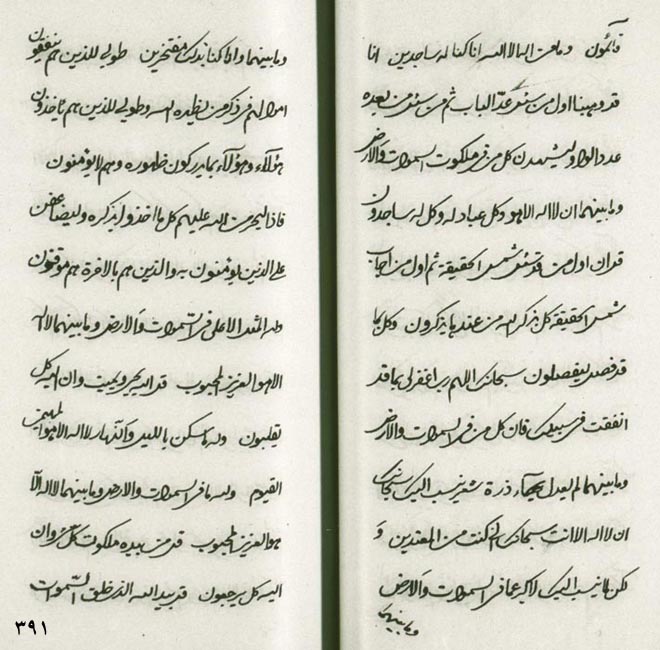 قائمون وما من اله الا الله انا كنا له ساجدين انا
قد وهبنا اول من سئل عدد الباب ثم من سئل من بعده
عدد الواو وليشهدن كل من في ملكوت السموات والارض
وما بينهما ان لا اله الا هو وكل عباد له وكل له ساجدون
قل ان اول من قد سئل شمس الحقيقة ثم اول من اجاب
شمس الحقيقة كل بذكر الله من عنده يذكرون وكل بما
قد فصل ليفصلون سبحانك اللهم رب اغفر لي بما قد
انفقت في سبيلك فان كل من في السموات والارض
وما بينهما لم يعدل بهاء ذرة شعر ينسب اليك سبحانك
ان لا اله الا انت سبحانك اني كنت من المعتدين و
لكن ما ينسب اليك لاكبر عما في السموات والارض
وما بينهما
وما بينهما وانا كنا بذلك مفتخرين طوبى للذين هم ينفقون
اموالهم في ذكر من يظهره الله وطوبى للذين هم ياخذون
هؤلاء وهؤلاء بما يدركون ظهوره وهم لا يؤمنون
فاذا ليحرمن الله عليهم كل ما اخذوا بذكره وليضاعفن
على الذين يؤمنون به والذين هم بالاخرة هم موقنون
وله المثل الاعلى في السموات والارض وما بينهما لا اله
الا هو العزيز المحبوب قل الله يحيي ويميت وان اليه كل
يقلبون وله ما سكن بالليل والنهار لا اله الا هو المهيمن
القيوم ولله ما في السموات والارض وما بينهما لا اله الا
هو العزيز المحبوب قل من بيده ملكوت كل شئ وان
اليه كل يرجعون قل بيد الله الذي خلق السموات
٣٩١